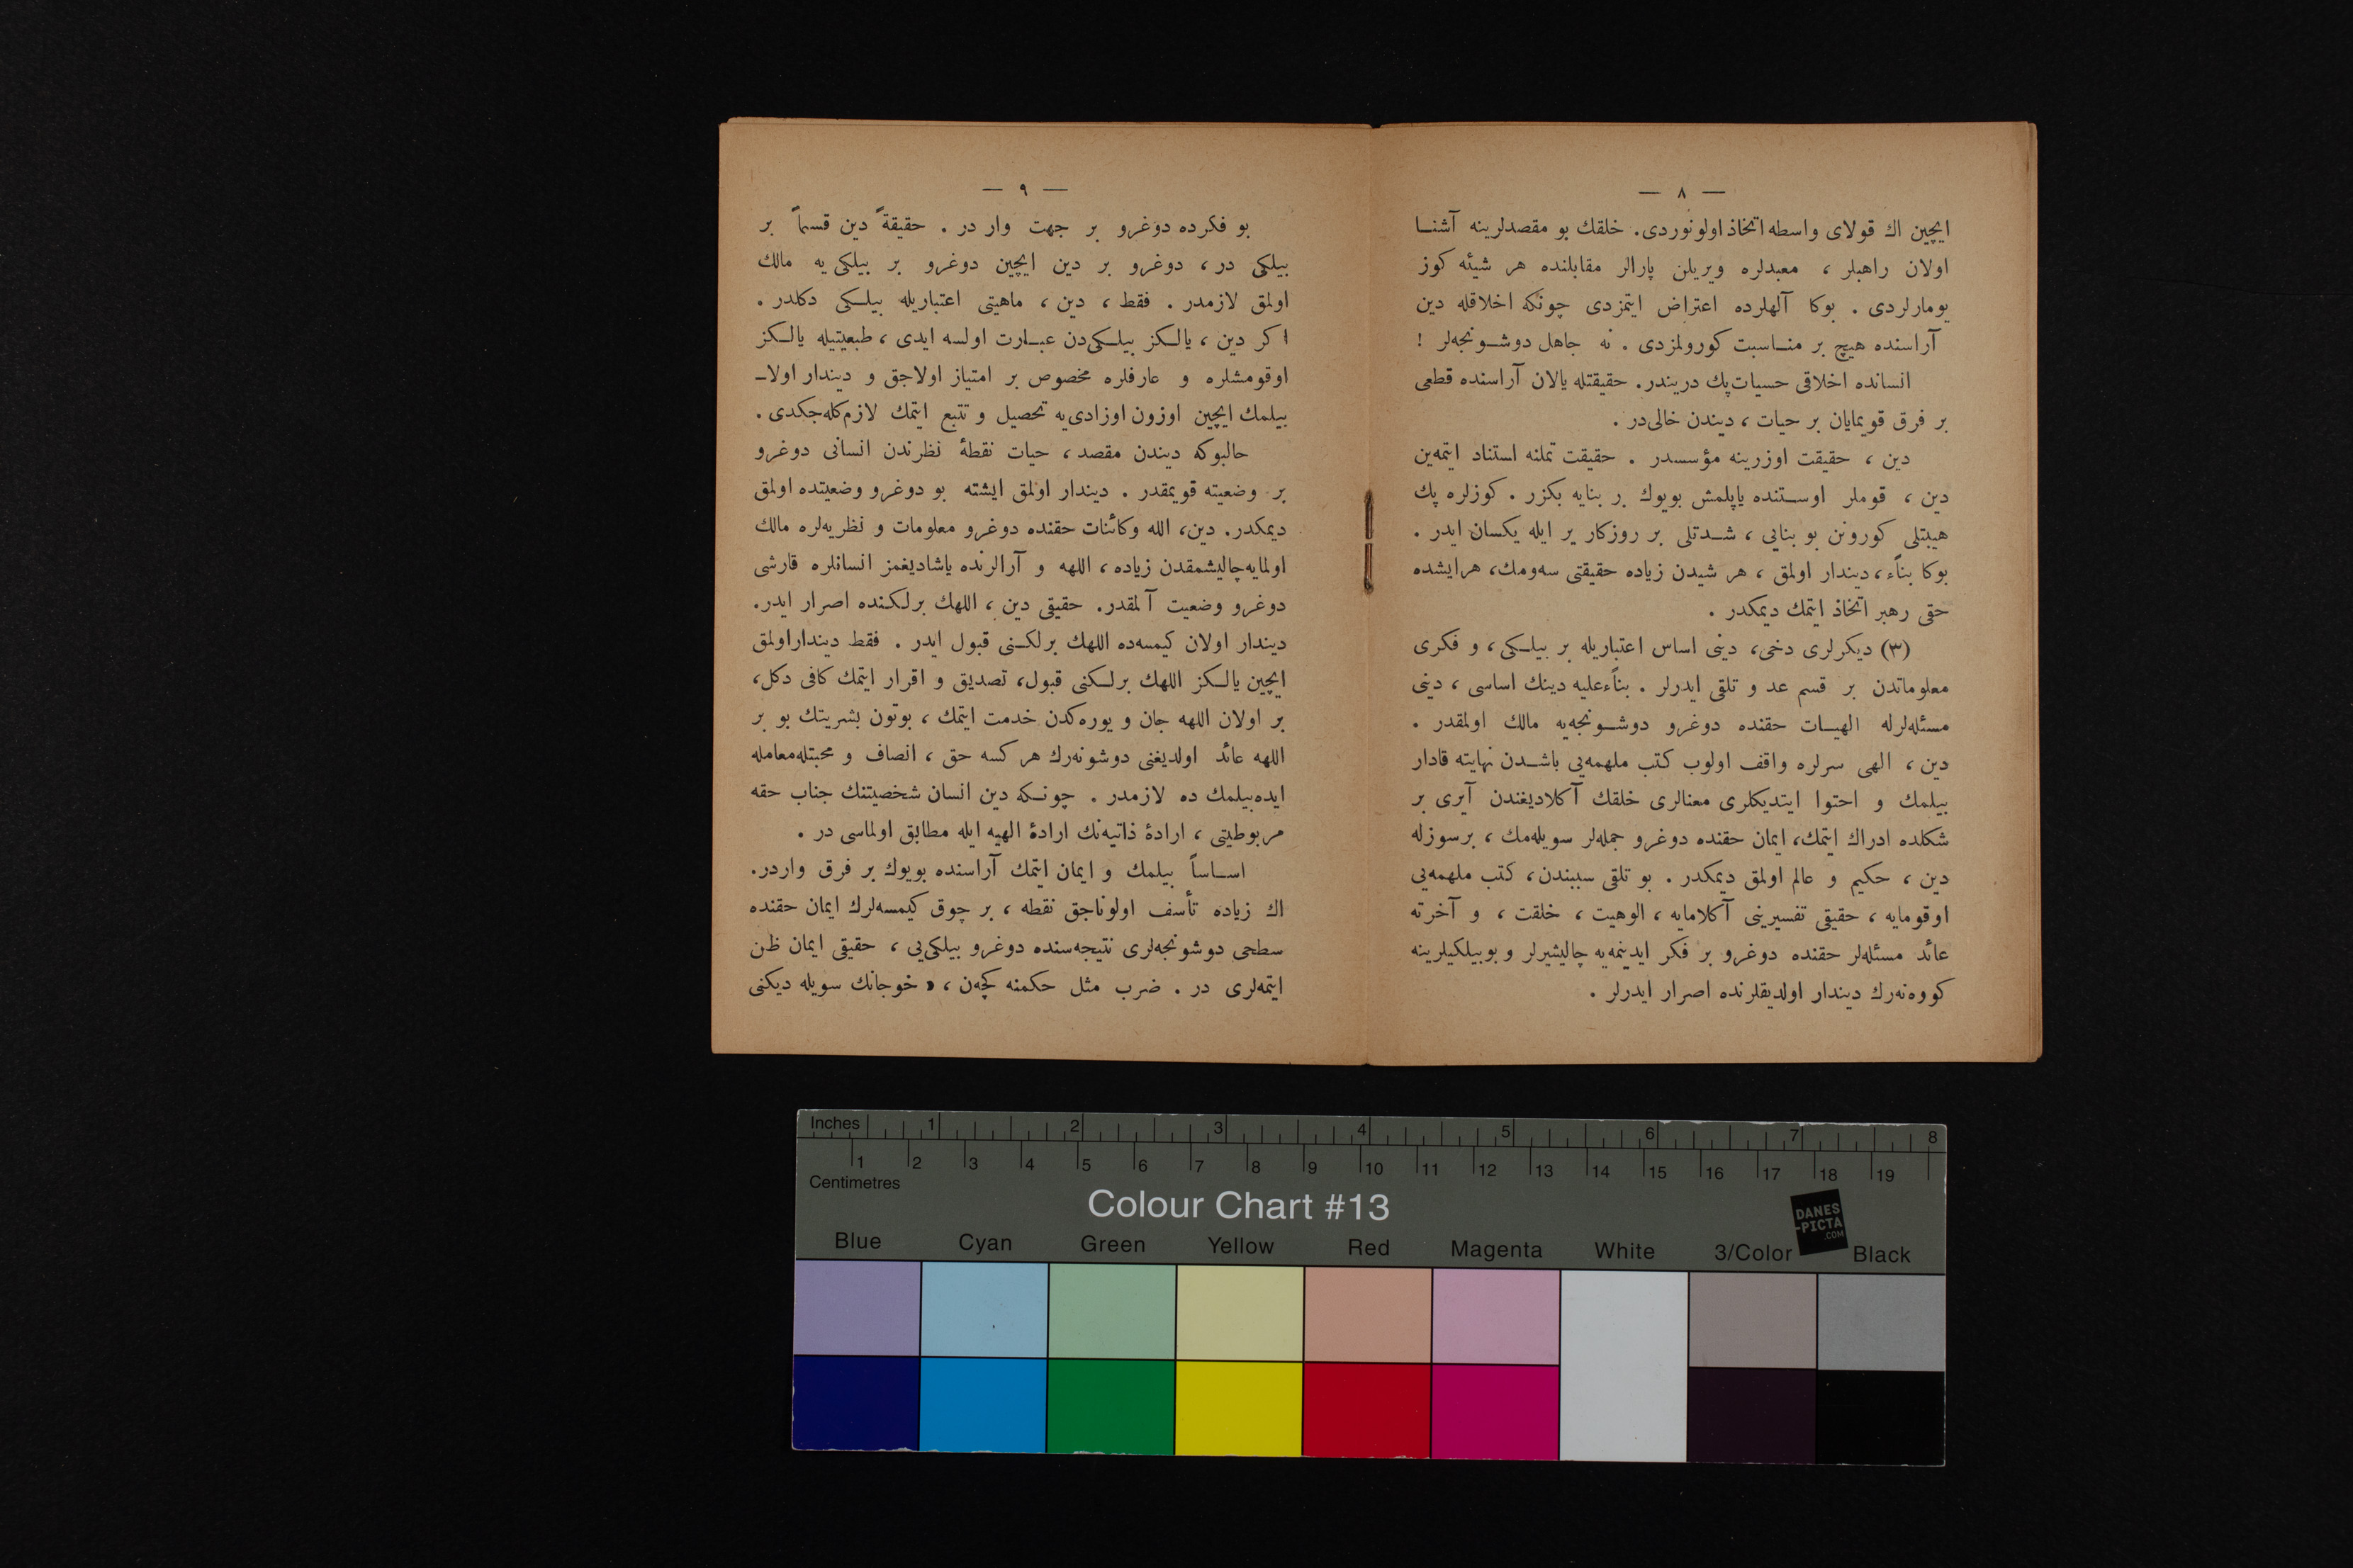 — ٨ —
ایچین اك قولای واسطه اتخاذ اولونوردی. خلقك بو مقصدلرینه آشنـا
اولان راهبلر ، معبدلره ویریلن پارالر مقابلنده هر شیئه كوز
یومارلردی . بوكا آلهلرده اعتراض ایتمزدی چونكه اخلاقله دین
آراسنده هیچ بر منـاسبت كورولمزدی . نه جاهل دوشـونجه‌لر !
انسانده اخلاقی حسیات پك دریندر. حقیقتله یالان آراسنده قطعی
بر فرق قویمایان بر حیات ، دیندن خالی‌در .
دین ، حقیقت اوزرینه مؤسسدر . حقیقت تملنه استناد ایتمه‌ین
دین ، قوملر اوسـتنده یاپلمش بویوك بر بنایه بكزر . كوزلره پك
هیبتلی كورونن بو بنایی ، شـدتلی بر روزكار یر ایله یكسان ایدر .
بوكا بناًء ، دیندار اولمق ، هر شیدن زیاده حقیقتی سه‌ومك، هرایشده
حقی رهبر اتخاذ ایتمك دیمكدر .
(٣) دیكرلری دخی، دینی اساس اعتباریله بر بیلـكی ، و فكری
معلوماتدن بر قسم عد و تلقی ایدرلر . بناًءعلیه دینك اساسی ، دینی
مسئله‌لرله الهیـات حقنده دوغرو دوشـونجه‌یه مالك اولمقدر .
دین ، الهی سرلره واقف اولوب كتب ملهمه‌یی باشـدن نهایته قادار
بیلمك و احتوا ایتدیكلری معنالری خلقك آكلادیغندن آیری بر
شكلده ادراك ایتمك، ایمان حقنده دوغرو جمله‌لر سویله‌مك ، برسوزله
دین ، حكیم و عالم اولمق دیمكدر . بو تلقی سببندن ، كتب ملهمه‌یی
اوقومایه ، حقیقی تفسیرینی آكلامایه ، الوهیت ، خلقت ، و آخرته
عائد مسئله‌لر حقنده دوغرو بر فكر ایدینمه‌یه چالیشیرلر و بوبیلكیلرینه
كووه‌نه‌رك دیندار اولدیقلرنده اصرار ایدرلر .
— ٩ —
بو فكرده دوغرو بر جهت وار در . حقیقةً دین قسماً بر
بیلكی در ، دوغرو بر دین ایچین دوغرو بر بیلكی‌یه مالك
اولمق لازمدر . فقط ، دین ، ماهیتی اعتباریله بیلـكی دكلدر .
اكر دین ، یالـكز بیلـكی‌دن عبـارت اولسه ایدی ، طبعیتیله یالـكز
اوقومشلره و عارفلره مخصوص بر امتیاز اولاجق و دیندار اولاـ
بیلمك ایچین اوزون اوزادی‌یه تحصیل و تتبع ایتمك لازم‌كله‌جكدی .
حالبوكه دیندن مقصد ، حیات نقطهٔ نظرندن انسانی دوغرو
بر وضعیته قویمقدر . دیندار اولمق ایشته بو دوغرو وضعیتده اولمق
دیمكدر. دین، الله وكائنات حقنده دوغرو معلومات و نظریه‌لره مالك
اولمایه‌چالیشمقدن زیاده ، اللهه و آرالرنده یاشادیغمز انسانلره قارشی
دوغرو وضعیت آلمقدر. حقیقی دین ، اللهك برلكنده اصرار ایدر.
دیندار اولان كیمسه‌ده اللهك برلكـنی قبول ایدر . فقط دینداراولمق
ایچین یالـكز اللهك برلـكنی قبول، تصدیق و اقرار ایتمك كافی دكل،
بر اولان اللهه جان و یوره‌كدن خدمت ایتمك ، بوتون بشریتك بو بر
اللهه عائد اولدیغنی دوشونه‌رك هر كسه حق ، انصاف و محبتله‌معامله
ایده‌بیلمك ده لازمدر . چونـكه دین انسان شخصیتنك جناب حقه
مربوطیتی ، ارادهٔ ذاتیه‌نك ارادهٔ الهیه ایله مطابق اولماسی در .
اسـاساً بیلمك و ایمان ایتمك آراسنده بویوك بر فرق واردر.
اك زیاده تأسف اولوناجق نقطه ، بر چوق كیمسه‌لرك ایمان حقنده
سطحی دوشونجه‌لری نتیجه‌سنده دوغرو بیلكی‌یی ، حقیقی ایمان ظن
ایتمه‌لری در . ضرب مثل حكمنه كچه‌ن ، « خوجانك سویله دیكنی
Inches 1 2 3 4 5 6 7 8
1 2 3 4 5 6 7 8 9 10 11 12 13 14 15 16 17 18 19
Centimetres
Colour Chart #13
DANES
-PICTA
.COM
Blue Cyan Green Yellow Red Magenta White 3/Color Black